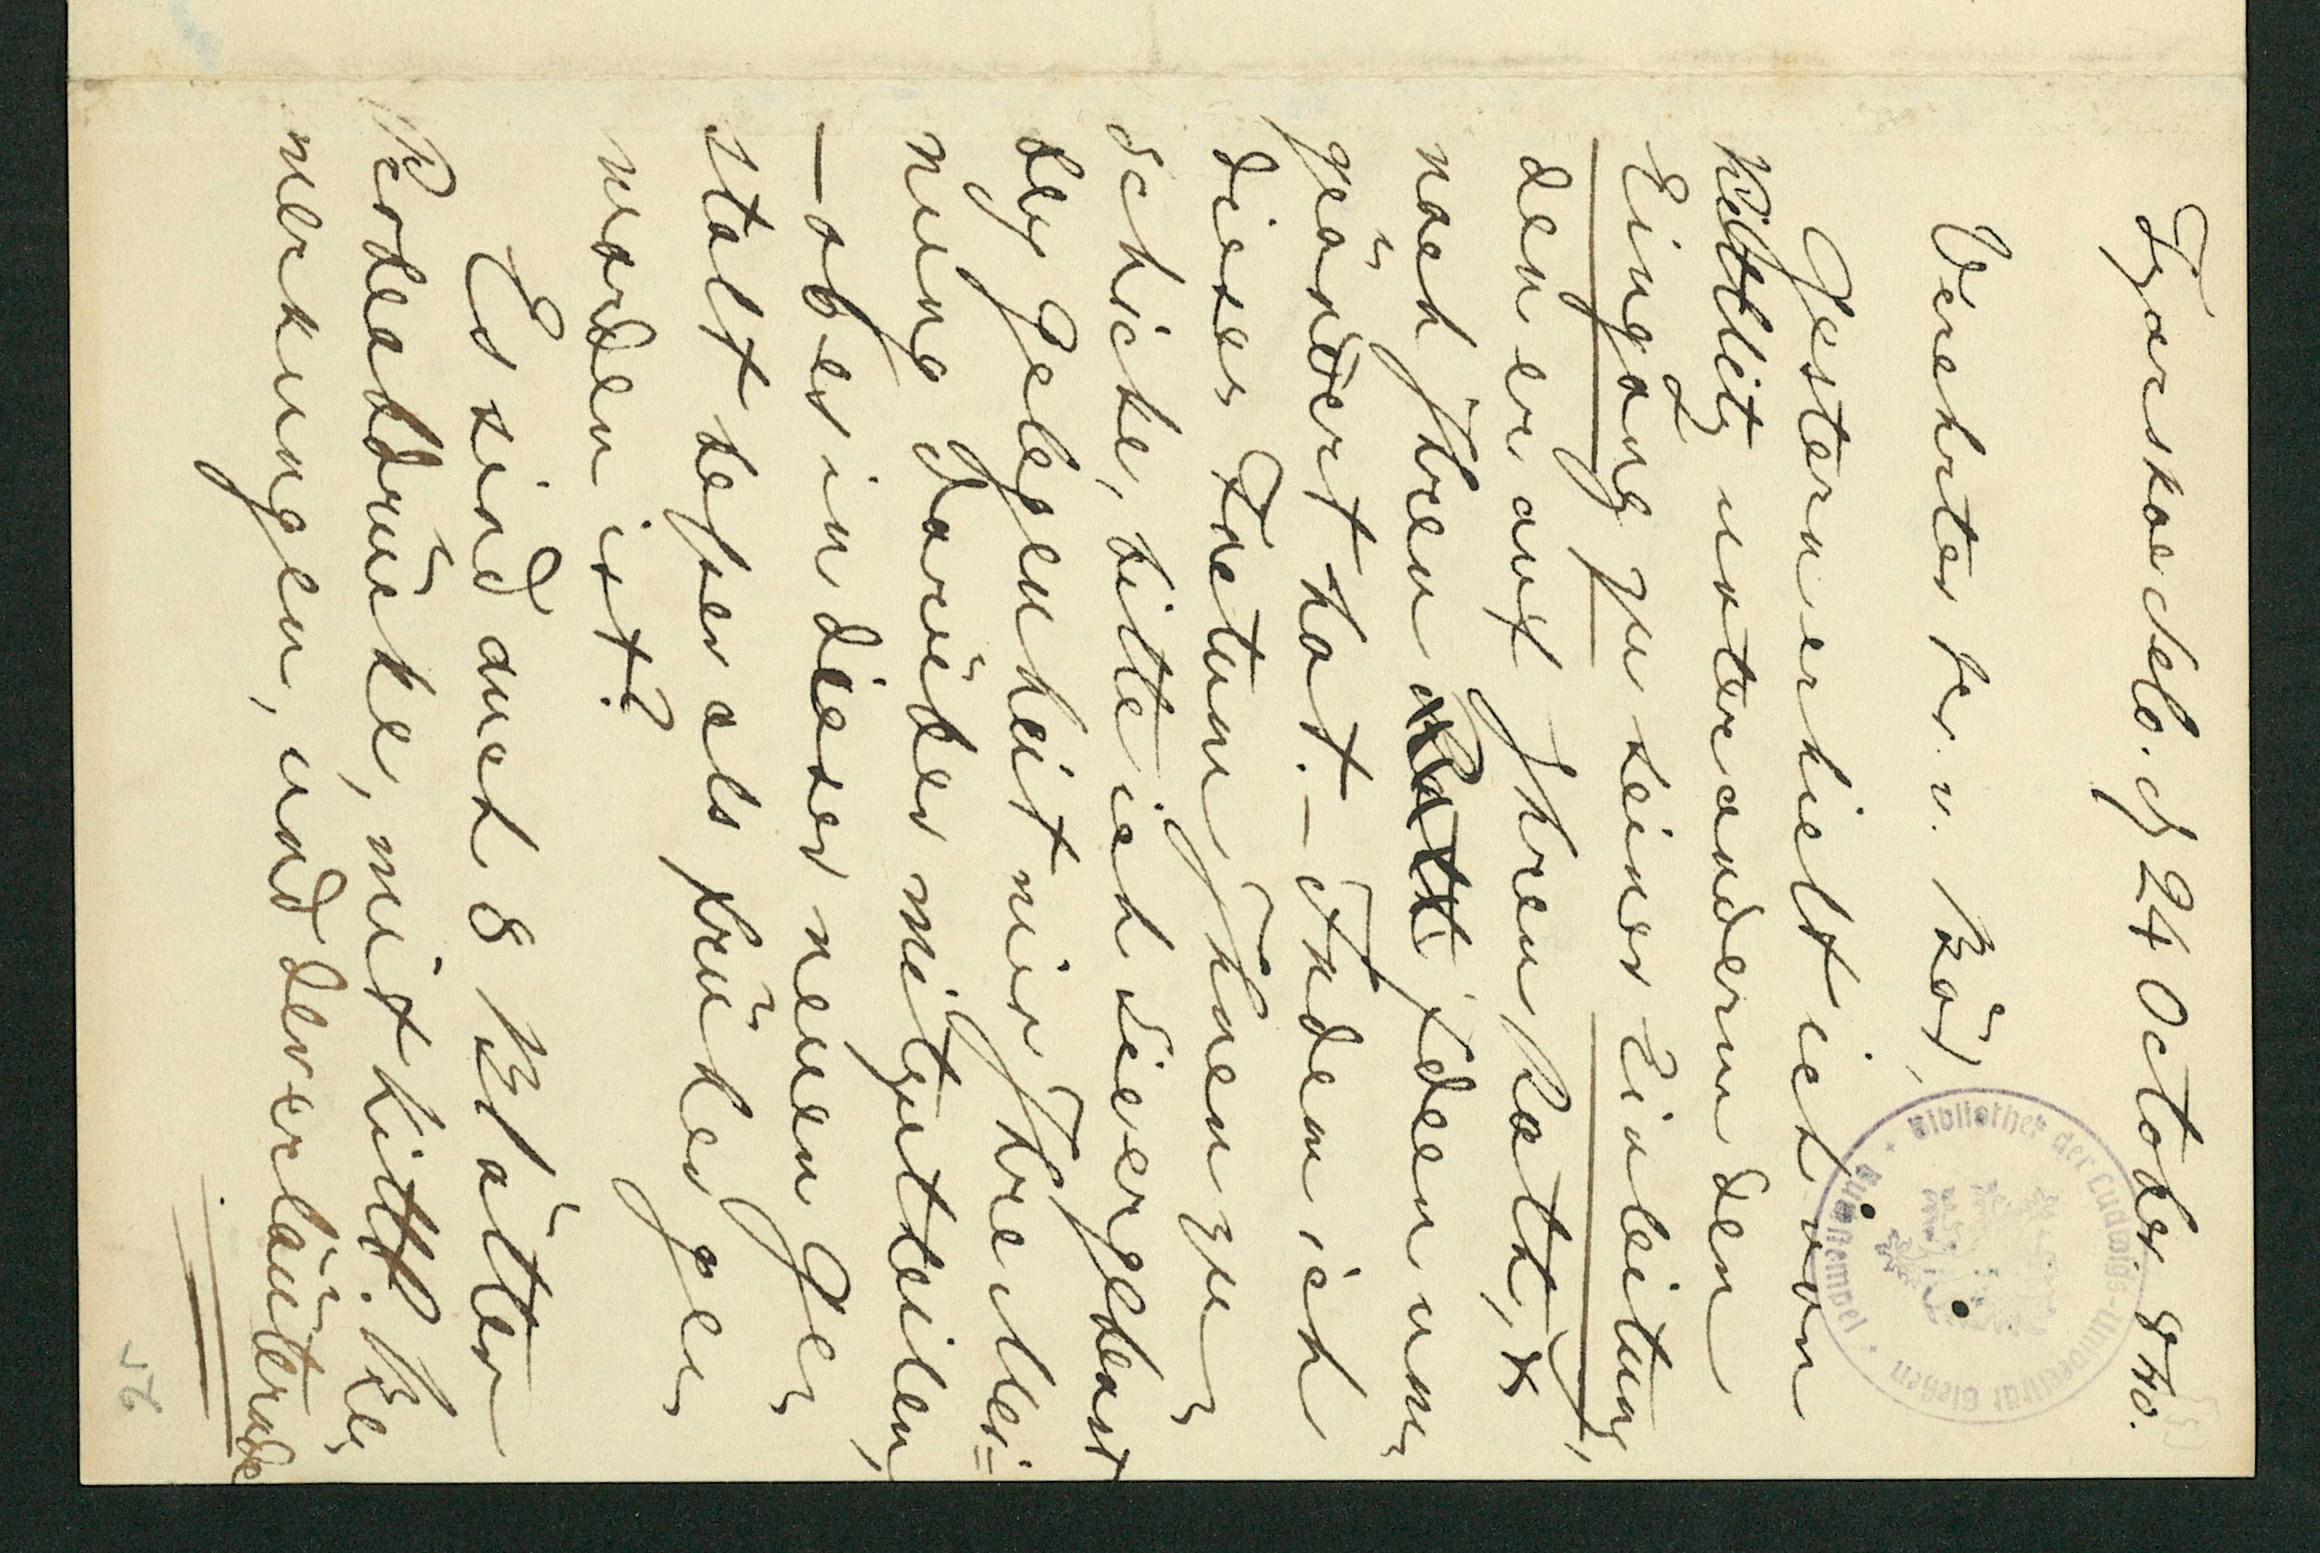 Zarskoe Selo. d/ 24 October. 870.
Verehrter Hr. v. Bär,
Gestern erhielt ich von
Kittlitz unter anderm den
Eingang zu seiner Einleitung,
den er auf Ihren Rath, &
nach Ihren Ideen um-
geändert hat. – Indem ich
dieses Factum Ihnen zu-
schicke, bitte ich Sie ergebenst
bey Gelegenheit mir Ihre Mei=
nung darüber mitzutheilen,
– ob es in dieser neuen Ge-
stalt besser als früher ge-
worden ist?
Es sind auch 8 Blätter
Probeabdrücke, mit Kittl. Be-
merkungen, und der erläuternde
Bibliothek der Ludwigs-Universität Gießen
2r